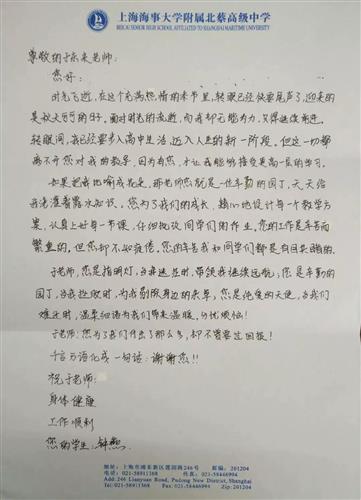 上海海事大学附属北蔡高级中学
BEICAI SENIOR HIGH SCHOOL AFFILIATED TO SHANGHAI MARITIME UNIVERSITY
尊敬的于东来老师:
您好:
时光飞逝,在这个充满热情的季节里,转眼已经快要尾声了,迎来的
是秋天的
面对时光的流逝,而我却无能为力,只得继续前进。
转眼间,我已经要步入高中生活,迈入人生的新一阶段。但这一切都
离不开您对我的教导,因为有您,才让我能够接受更高一层的学习。
如果把我比喻成花朵,那老师您就是一位辛勤的园丁,天天给
我浇灌着露水知识。您为了我们的成长,精心地设计每一个教学方
案,认真上好每一节课,仔细批改同学们的作业。您的工作是辛苦而
繁重的,但您却不知疲倦。您的辛苦我和同学们都是有目共睹的。
于老师,您是指明灯,当我迷茫时,带领我继续远航;您是辛勤的
园丁,当我松散时,为我剔除身边的杂草,您是纯爱的天使,当我们
难过时,温柔细语为我们带来温暖,分忧烦恼!
于老师:您为了我们付出了那么多,却不需要过回报!
千言万语化成一句话:谢谢您!!
祝于老师:
身体健康
工作顺利
您的学生:
地址:上海市浦东新区莲园路246号 邮编:201204
电话:021-58911368 传真:021-58446994
Add:246 Lianyuan Road, Pudong New District, Shanghai
Tel:021-58911368 Fax:021-58446994 Zip:201204